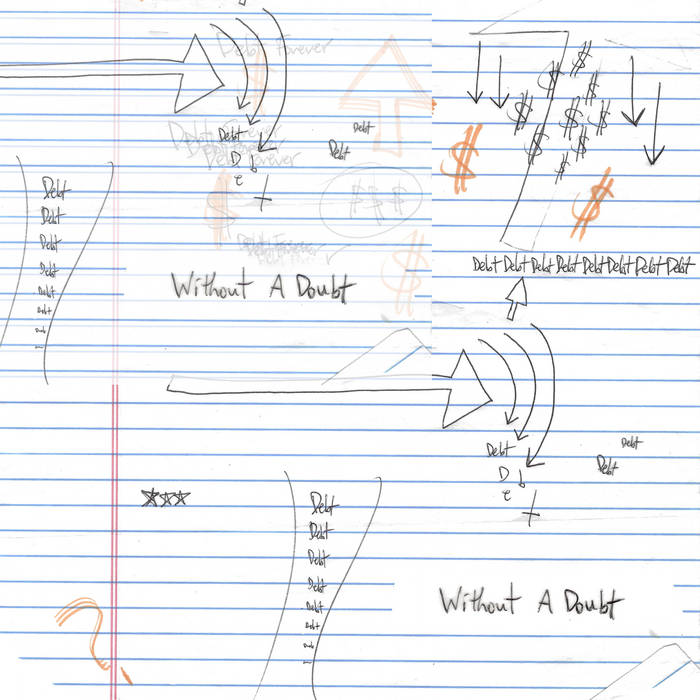 Debt Forever
Debt Forever
Debt Forever
Debt Forever
Debt
Debt
Debt
D
e
b
t
$$$
Debt Forever
Debt
Debt
Debt
Debt
Debt
Debt
Debt
Without A Doubt
$ $ $ $ $ $ $ $ $
$ $
Debt Debt Debt Debt Debt Debt Debt Debt
Debt
D
e
b
t
Debt
Debt
Debt
Debt
Debt
Debt
Debt
Debt
Without A Doubt